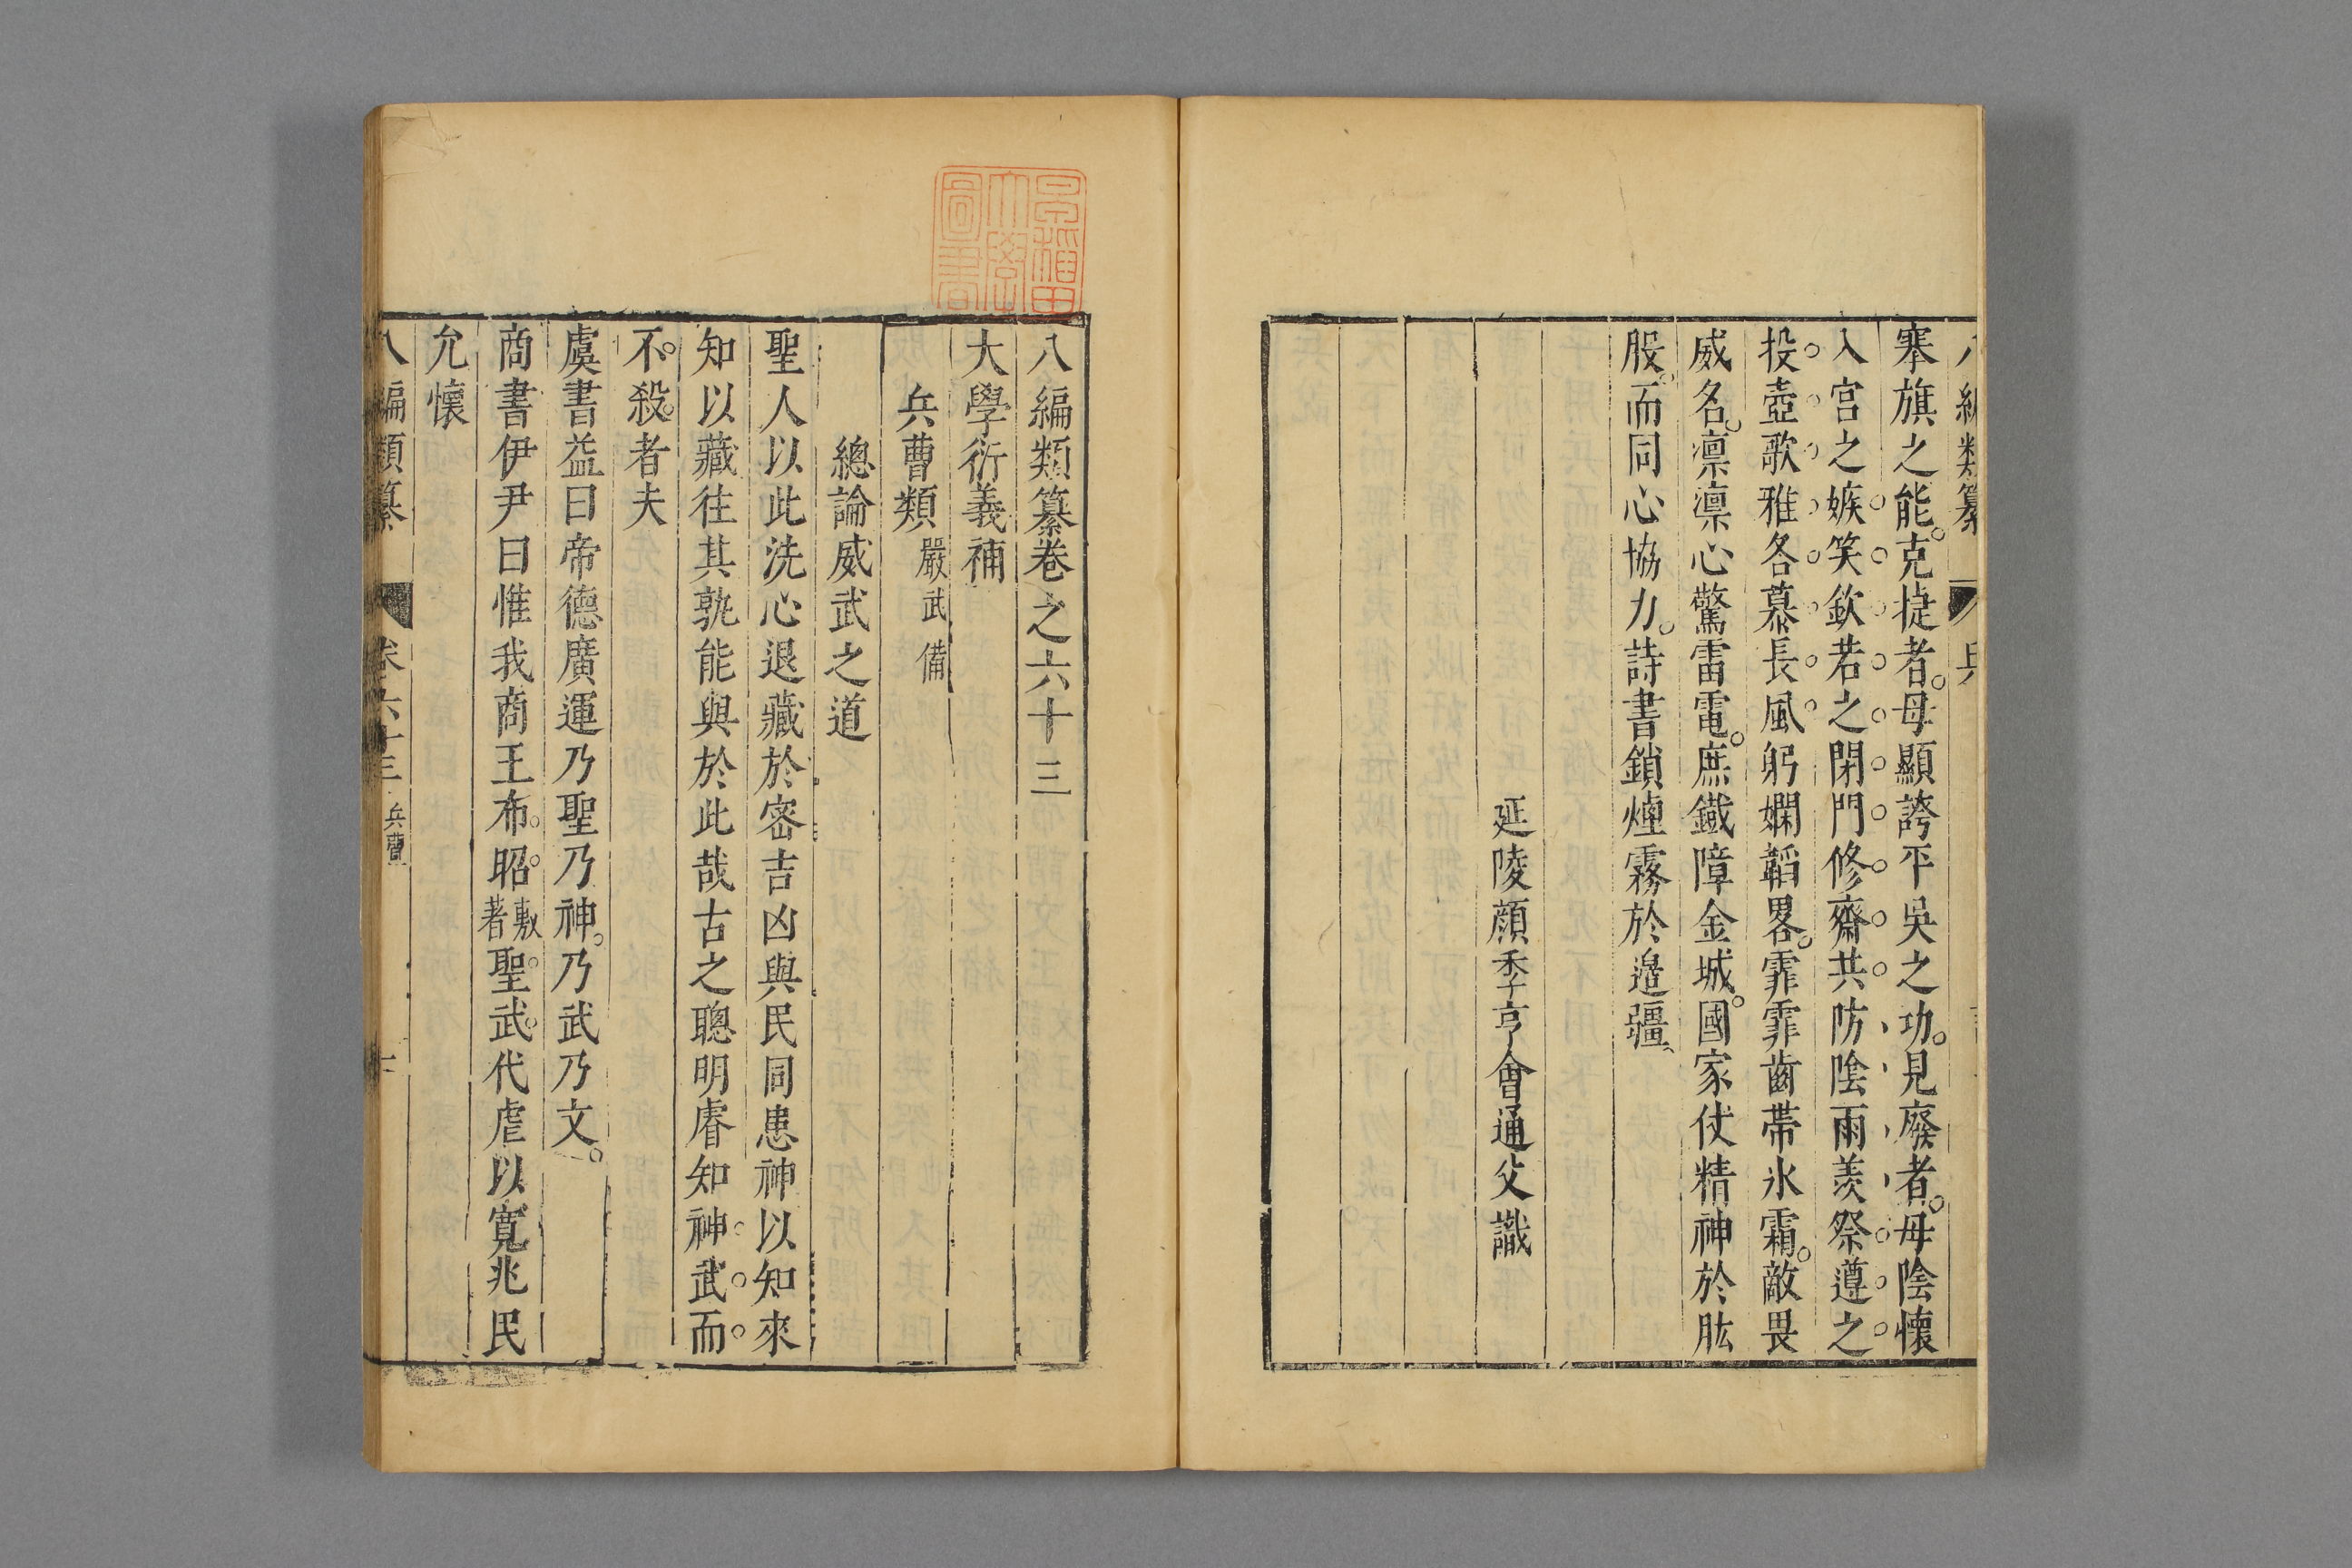 八編類纂 兵
搴旗之能克㨗者毋顯誇平吳之功見廢者毋陰懷
入宮之嫉笑欽若之閉門修齋共防陰雨羨祭遵之
投壺歌雅各慕長風躬嫻韜畧霏霏齒帶氷霜敵畏
威名凛凛心驚雷電庶鐵障金城國家仗精神於肱
股而同心協力詩書鎖煙霧於邉疆
延陵顔季亨會通父識
早稲田大學圖書
八編類纂卷之六十三
大學衍義補
兵曹類 嚴武備
總論威武之道
聖人以此洗心退藏於密吉凶與民同患神以知來
知以藏往其孰能與於此哉古之聰明睿知神武而
不殺者夫
虞書益曰帝德廣運乃聖乃神乃武乃文
商書伊尹曰惟我商王布昭敷著聖武代虐以寬兆民
允懷
八編類纂 卷六十三 兵曹 一